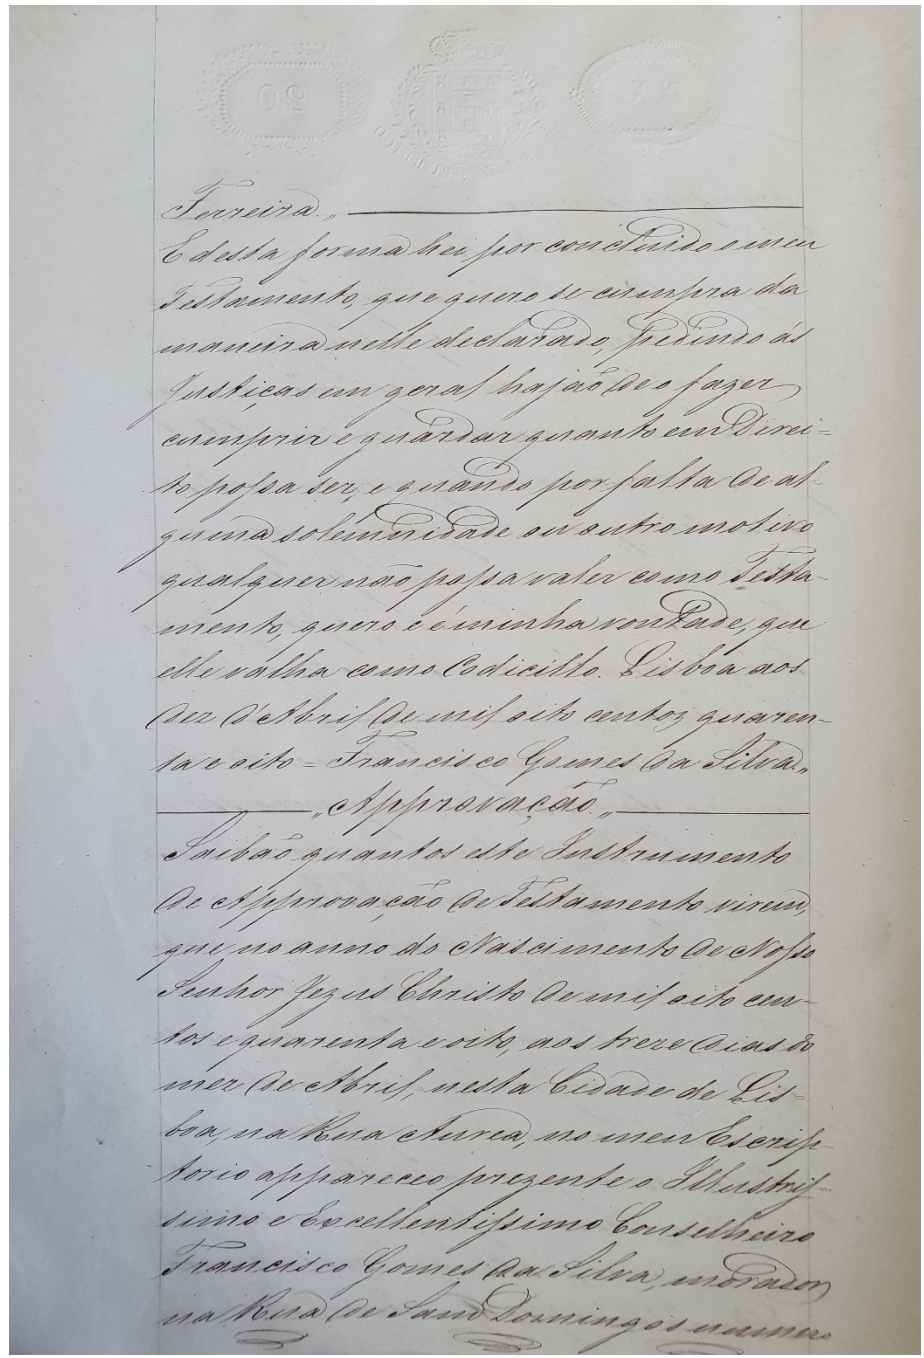 20
XX
Ferreira „
E desta forma hei por concluido o meu
Testamento, que quero se cumpra da
maneira nelle declarado, pedindo ás
Justiças em geral hajão de o fazer
cumprir e guardar quanto em Direi=
to possa ser, e quando por falta de al-
guma solemnidade ou outro motivo
qualquer não possa valer como Testa-
mento, quero e é minha vontade, que
elle valha como Codicillo. Lisboa aos
dez d'Abril de mil oito centos quaren-
ta e oito = Francisco Gomes da Silva „
„ Approvação „
Saibão quantos este Instrumento
de Approvação de Testamento virem,
que no anno do Nascimento de Nosso
Senhor Jezus Christo de mil oito cen-
tos e quarenta e oito, aos treze dias do
mez de Abril, nesta Cidade de Lis-
boa, na Rua Aurea, no meu Escrip-
torio appareceo prezente o Illustris-
simo e Excellentissimo Conselheiro
Francisco Gomes da Silva, morador
na Rua de Saõ Domingos numero